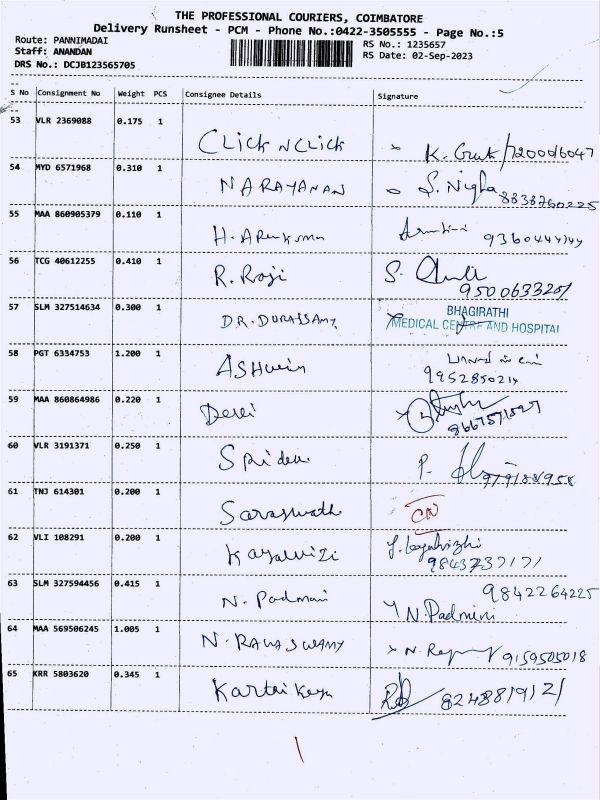 THE PROFESSIONAL COURIERS, COIMBATORE
Delivery Runsheet - PCM - Phone No.:0422-3505555 - Page No.:5
Route: PANNIMADAI
RS No.: 1235657
Staff: ANANDAN
RS Date: 02-Sep-2023
DRS No.: DCJB123565705
S No Consignment No Weight PCS Consignee Details Signature
53 VLR 2369088 0.175 1 CLick N CLick K. 7200016047
54 MYD 6571968 0.310 1 NARAYANAN S. 8838760225
55 MAA 860905379 0.110 1 H. Arunkumar
56 TCG 40612255 0.410 1 R. Roji S. 9500633251
57 SLM 327514634 0.300 1 DR. DURAISAMY BHAGIRATHI
MEDICAL CENTRE AND HOSPITAL
58 PGT 6334753 1.200 1 ASHwin
9952850214
59 MAA 860864986 0.220 1 Devi
8667571527
60 VLR 3191371 0.250 1 P. 979188958
61 TNJ 614301 0.200 1 Saraswathi CN
62 VLI 108291 0.200 1 Kayalvizi
9843737171
63 SLM 327594456 0.415 1 N. Padmini 9842264225
N. Padmini
64 MAA 569506245 1.005 1 N. RAMASWAMY N. 9159505018
65 KRR 5803620 0.345 1 Kartikeya 8248819121